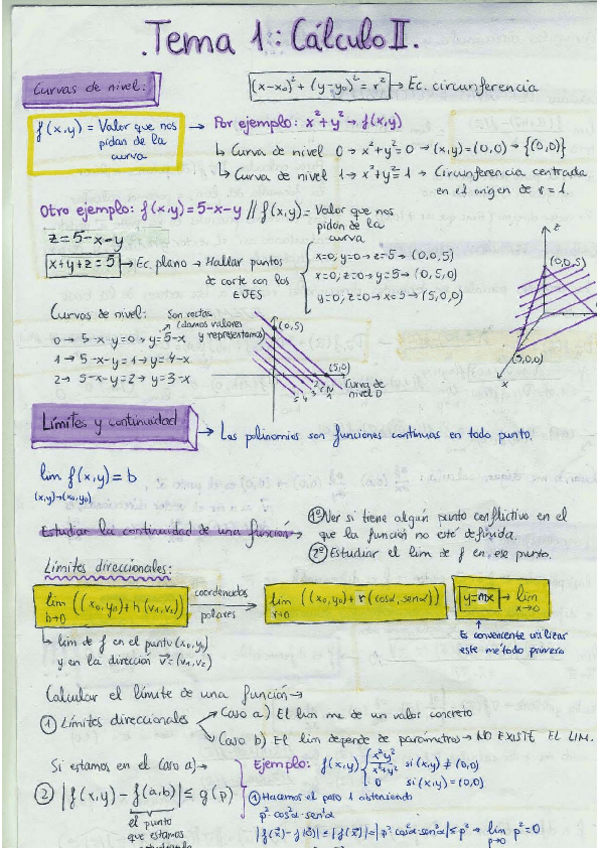 Tema 1: Cálculo II.
Curvas de nivel:
(x-x₀)² + (y-y₀)² = r² → Ec. circunferencia
f(x,y) = Valor que nos pidan de la curva → Por ejemplo: x²+y² → f(x,y)
↳ Curva de nivel 0 → x²+y²=0 → (x,y)=(0,0) → {(0,0)}
↳ Curva de nivel 1 → x²+y²=1 → Circunferencia centrada
en el origen de r=1.
Otro ejemplo: f(x,y)=5-x-y // f(x,y)= Valor que nos
pidan de la
curva
z=5-x-y
x+y+z=5 → Ec. plano → Hallar puntos
de corte con los
EJES
x=0, y=0 → z=5 → (0,0,5)
x=0, z=0 → y=5 → (0,5,0)
y=0, z=0 → x=5 → (5,0,0)
z
(0,0,5)
(5,0,0)
x
Curvas de nivel: Son rectas
(damos valores
y representamos)
0 → 5-x-y=0 → y=5-x
1 → 5-x-y=1 → y=4-x
2 → 5-x-y=2 → y=3-x
(0,5)
(5,0)
5 4 3 2 1
Curva de
nivel 0
Límites y continuidad → Los polinomios son funciones continuas en todo punto.
lim f(x,y)=b
(x,y)→(x₀,y₀)
Estudiar la continuidad de una función → 1º Ver si tiene algún punto conflictivo en el
que la función no esté definida.
2º Estudiar el lim de f en ese punto.
Límites direccionales:
lim ((x₀,y₀)+h(v₁,v₂))
h→0
coordenadas
polares
lim ((x₀,y₀)+r(cosα,senα))
r→0
y=mx → lim
x→0
↳ lim de f en el punto (x₀,y₀)
y en la dirección v⃗=(v₁,v₂)
Es conveniente utilizar
este método primero
Calcular el límite de una función →
① Límites direccionales → Caso a) El lim me da un valor concreto
→ Caso b) El lim depende de parámetros → NO EXISTE EL LIM.
Si estamos en el caso a) →
② |f(x,y) - f(a,b)| ≤ g(ρ)
el punto
que estamos
estudiando
Ejemplo: f(x,y) { x²y²/x²+y² si (x,y) ≠ (0,0)
0 si (x,y) = (0,0)
① Hacemos el paso 1 obteniendo
ρ² cos²α · sen²α
|f(x⃗)-f(0⃗)| = |f(x⃗)| = |ρ² cos²α · sen²α| ≤ ρ² → lim ρ²=0
ρ→0